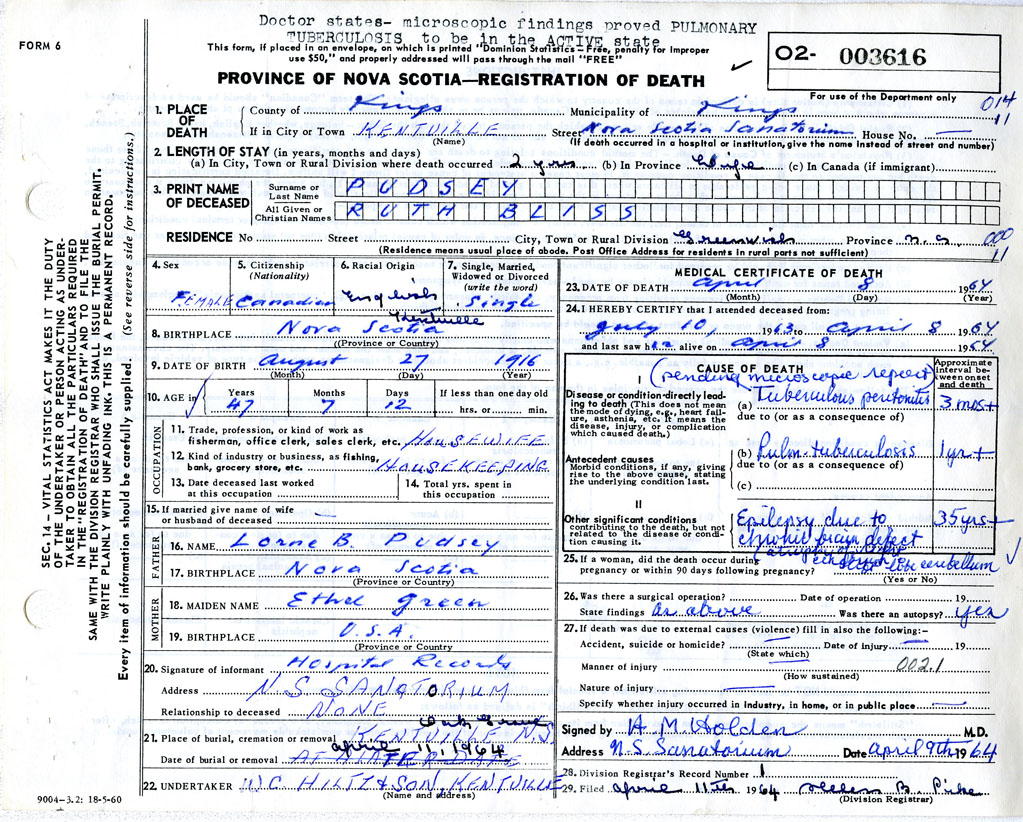 Doctor states- microscopic findings proved PULMONARY
TUBERCULOSIS to be in the ACTIVE state
FORM 6
This form, if placed in an envelope, on which is printed "Dominion Statistics - Free, penalty for improper
use $50," and properly addressed will pass through the mail "FREE"
PROVINCE OF NOVA SCOTIA—REGISTRATION OF DEATH
O2- 003616
For use of the Department only
014
11
1. PLACE OF DEATH
County of Kings Municipality of Kings
If in City or Town KENTVILLE Street Nova Scotia Sanatorium House No. —
(Name) (If death occurred in a hospital or institution, give the name instead of street and number)
2. LENGTH OF STAY (in years, months and days)
(a) In City, Town or Rural Division where death occurred 2 yrs (b) In Province Life (c) In Canada (if immigrant)
3. PRINT NAME OF DECEASED
Surname or Last Name PUDSEY
All Given or Christian Names RUTH BLISS
RESIDENCE No Street City, Town or Rural Division Greenwich Province N.S.
000
11
(Residence means usual place of abode. Post Office Address for residents in rural parts not sufficient)
4. Sex FEMALE
5. Citizenship (Nationality) Canadian
6. Racial Origin English
7. Single, Married, Widowed or Divorced (write the word) Single
8. BIRTHPLACE Nova Scotia
(Province or Country)
9. DATE OF BIRTH August 27 1916
(Month) (Day) (Year)
10. AGE in Years Months Days If less than one day old
47 7 12 hrs. or min.
OCCUPATION
11. Trade, profession, or kind of work as
fisherman, office clerk, sales clerk, etc. HOUSEWIFE
12. Kind of industry or business, as fishing,
bank, grocery store, etc. HOUSEKEEPING
13. Date deceased last worked
at this occupation
14. Total yrs. spent in
this occupation
15. If married give name of wife
or husband of deceased —
FATHER
16. NAME Lorne B. Pudsey
17. BIRTHPLACE Nova Scotia
(Province or Country)
MOTHER
18. MAIDEN NAME Ethel Green
19. BIRTHPLACE U.S.A.
(Province or Country)
20. Signature of informant Hospital Records
Address N S SANATORIUM
Relationship to deceased NONE
21. Place of burial, cremation or removal KENTVILLE N.S.
April 11, 1964
Date of burial or removal AT LATER DATE
22. UNDERTAKER W C HILTZ & SON, KENTVILLE
(Name and address)
9004-3.2: 18-5-60
SEC. 14 - VITAL STATISTICS ACT MAKES IT THE DUTY
OF THE UNDERTAKER OR PERSON ACTING AS UNDER-
TAKER TO OBTAIN ALL THE PARTICULARS REQUIRED
IN THE "REGISTRATION OF DEATH" AND TO FILE THE
SAME WITH THE DIVISION REGISTRAR WHO SHALL ISSUE THE BURIAL PERMIT.
WRITE PLAINLY WITH UNFADING INK. THIS IS A PERMANENT RECORD.
Every item of information should be carefully supplied. (See reverse side for instructions.)
MEDICAL CERTIFICATE OF DEATH
23. DATE OF DEATH April 8 1964
(Month) (Day) (Year)
24. I HEREBY CERTIFY that I attended deceased from:
July 10, 1963 to April 8 1964
and last saw her alive on April 8 1964
CAUSE OF DEATH
Approximate interval between onset and death
I (pending microscopic report)
Disease or condition directly leading to death (This does not mean the mode of dying, e.g., heart failure, asthenia, etc. It means the disease, injury, or complication which caused death.)
(a) Tuberculous peritonitis 3 mos +
due to (or as a consequence of)
Antecedent causes
Morbid conditions, if any, giving rise to the above cause, stating the underlying condition last.
(b) Pulm. tuberculosis 1 yr +
due to (or as a consequence of)
(c)
II
Other significant conditions
contributing to the death, but not related to the disease or condition causing it.
Epilepsy due to 35 yrs +
chronic brain defect
cerebellum
25. If a woman, did the death occur during
pregnancy or within 90 days following pregnancy?
(Yes or No)
26. Was there a surgical operation? Date of operation 19
State findings As above Was there an autopsy? yes
27. If death was due to external causes (violence) fill in also the following:-
Accident, suicide or homicide? — Date of injury 19
(State which)
Manner of injury 002.1
(How sustained)
Nature of injury —
Specify whether injury occurred in industry, in home, or in public place —
Signed by H M Holden M.D.
Address N.S. Sanatorium Date April 9th 1964
28. Division Registrar's Record Number 1
29. Filed April 11th 1964
(Division Registrar)